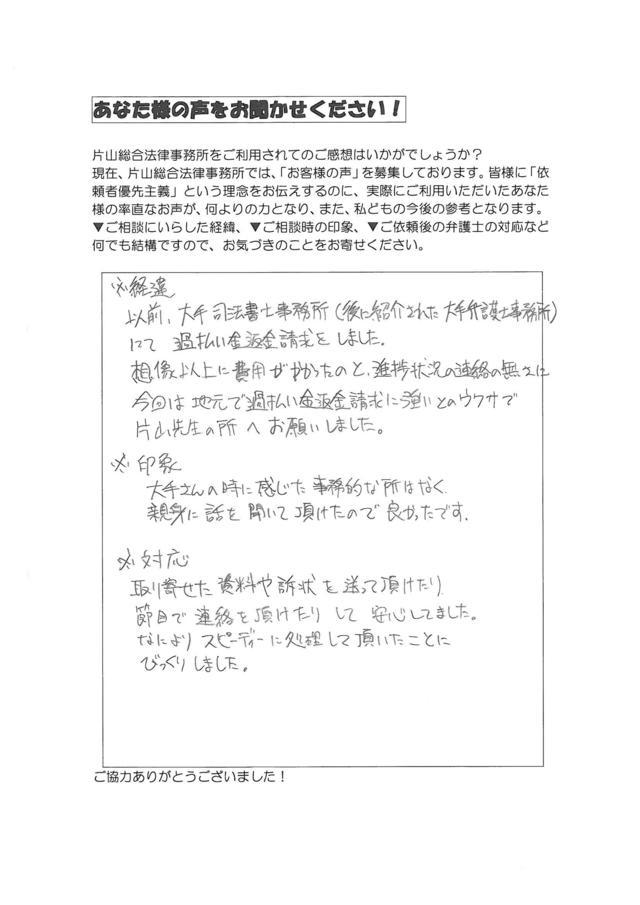 あなた様の声をお聞かせください！
片山総合法律事務所をご利用されてのご感想はいかがでしょうか？
現在、片山総合法律事務所では、「お客様の声」を募集しております。皆様に「依
頼者優先主義」という理念をお伝えするのに、実際にご利用いただいたあなた
様の率直なお声が、何よりの力となり、また、私どもの今後の参考となります。
▼ご相談にいらした経緯、▼ご相談時の印象、▼ご依頼後の弁護士の対応など
何でも結構ですので、お気づきのことをお寄せください。
※経違
以前、大手司法書士事務所（後に紹介された大手弁護士事務所）
にて過払い金返金請求をしました。
想像以上に費用がかかったのと、進捗状況の連絡の無さに
今回は地元で過払い金返金請求に強いとのウワサで
片山先生の所へお願いしました。
※印象
大手さんの時に感じた事務的な所はなく
親身に話を聞いて頂けたので良かったです.
※対応
取り寄せた資料や訴状を送って頂けたり
節目で連絡を頂けたりして安心してました。
なによりスピーディーに処理して頂いたことに
びっくりしました。
ご協力ありがとうございました！